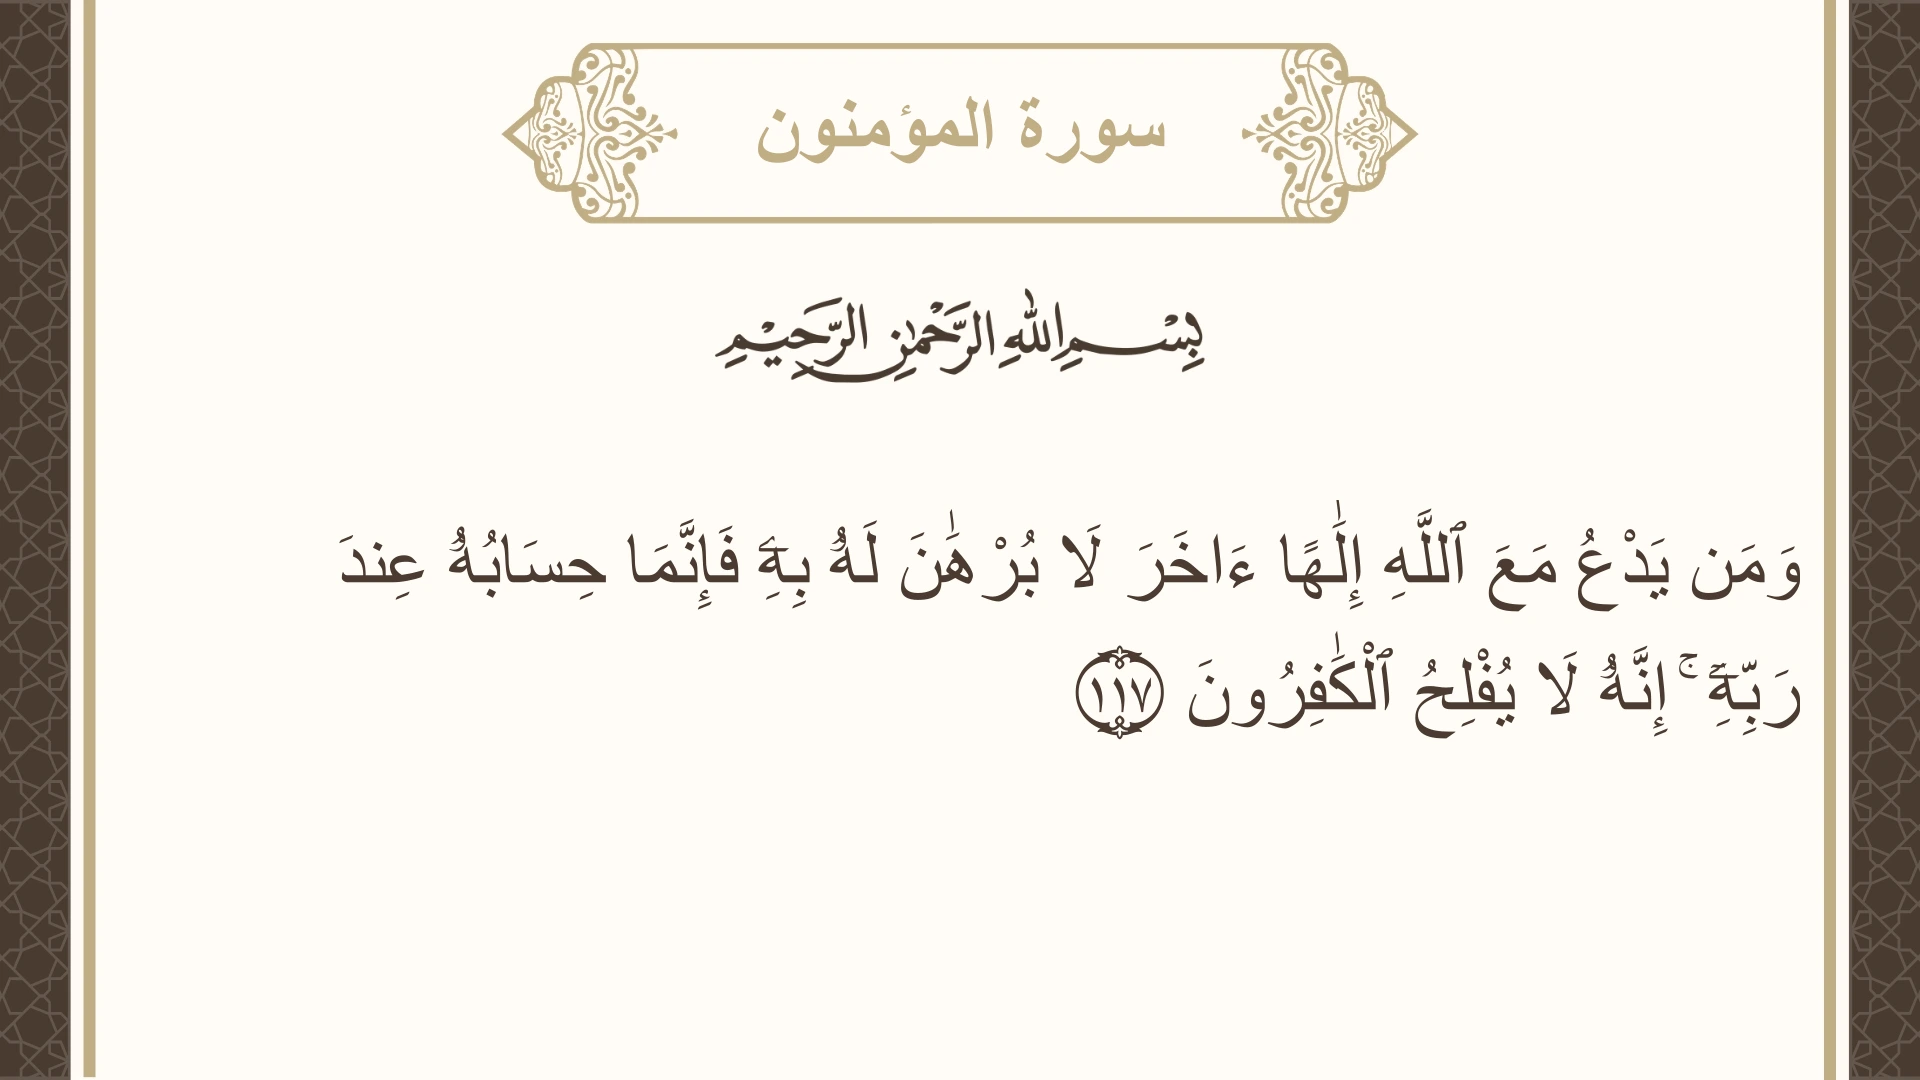 سورة المؤمنون
بِسْمِ اللهِ الرَّحْمٰنِ الرَّحِيْمِ
وَمَن يَدْعُ مَعَ ٱللَّهِ إِلَٰهًا ءَاخَرَ لَا بُرْهَٰنَ لَهُۥ بِهِۦ فَإِنَّمَا حِسَابُهُۥ عِندَ
رَبِّهِۦٓ ۚ إِنَّهُۥ لَا يُفْلِحُ ٱلْكَٰفِرُونَ ١١٧